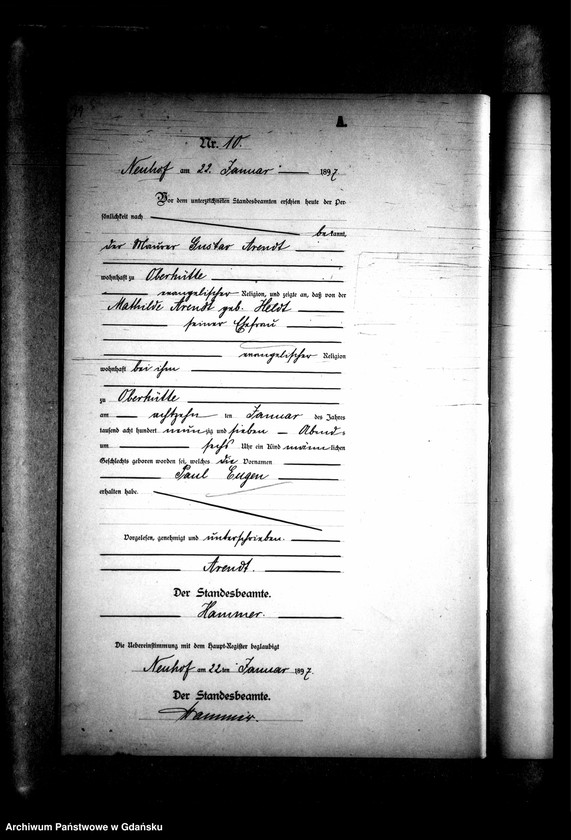 A.
Nr. 10.
Neuhof am 22. Januar 1897
Vor dem unterzeichneten Standesbeamten erschien heute der Per-
sönlichkeit nach
bekannt,
der Maurer Gustav Arendt
wohnhaft zu Oberhütte
evangelischer Religion, und zeigte an, daß von der
Mathilde Arendt geb. Heldt
seiner Ehefrau
evangelischer Religion
wohnhaft bei ihm
zu Oberhütte
am achtzehn ten Januar des Jahres
tausend acht hundert neunzig und sieben Abends
um sechs Uhr ein Kind männlichen
Geschlechts geboren worden sei, welches die Vornamen
Paul Eugen
erhalten habe.
Vorgelesen, genehmigt und unterschrieben.
Arendt.
Der Standesbeamte.
Hammer.
Die Uebereinstimmung mit dem Haupt-Register beglaubigt
Neuhof am 22ten Januar 1897.
Der Standesbeamte.
Hammer.
Archiwum Państwowe w Gdańsku